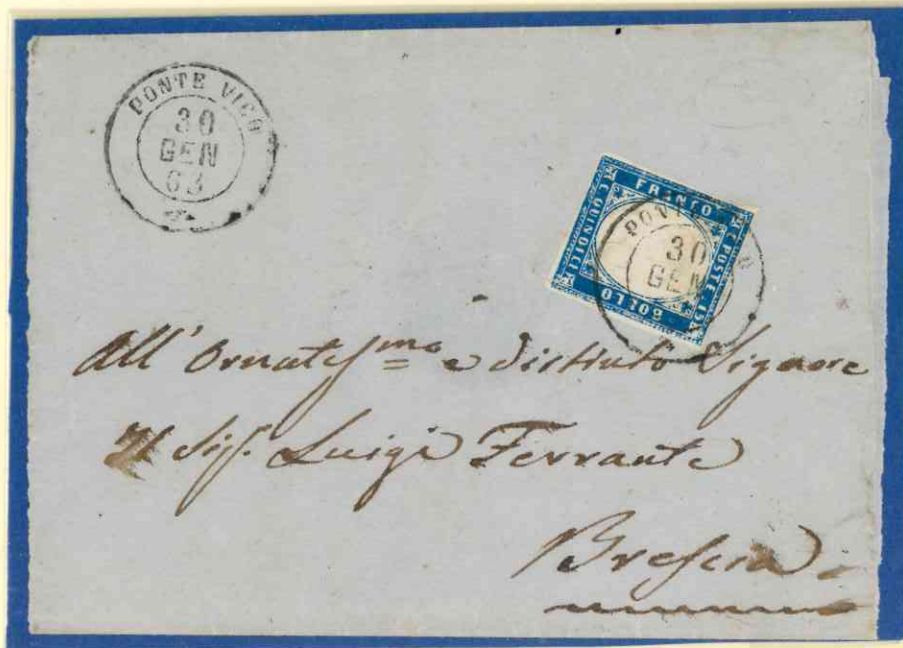 PONTE VICO
30
GEN
63
FRANCO
C. QUINDICI
C. POSTE. 15
BOLLO
30
GEN
All' Ornatesſmo e distinto Signore
Il Sig. Luigi Ferrante
Breſcia